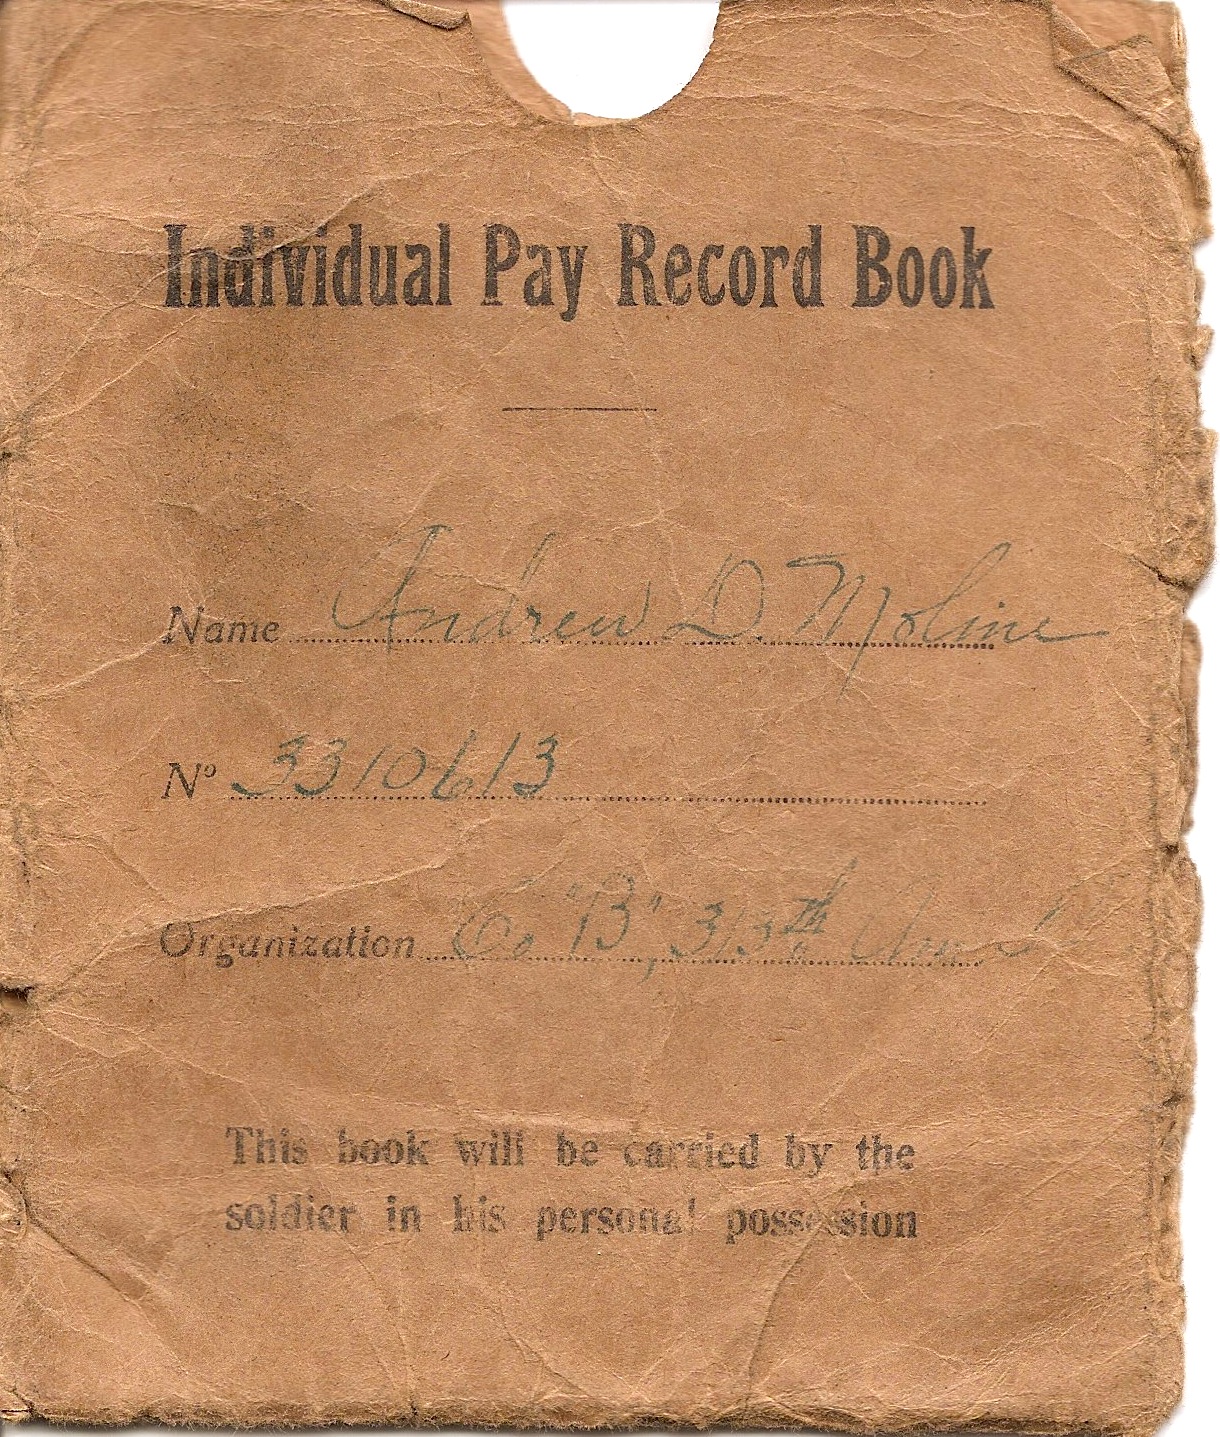 Individual Pay Record Book
Name Andrew D. Moline
Nº 3310613
Organization Co "B", 313th
This book will be carried by the
soldier in his personal possession